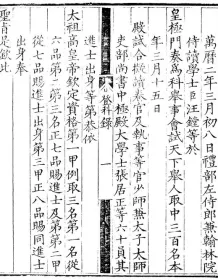 萬曆二年三月初八日禮部左侍郎兼翰林院
侍讀學士臣汪鏜等於
皇極門奏為科舉事會試天下舉人取中三百名本
年三月十五日
殿試合擬讀卷官及執事等官少師兼太子太師
吏部尚書中極殿大學士張居正等六十員其
進士出身等第恭依
登科錄
太祖高皇帝欽定資格第一甲例取三名第一名從
六品第二第三名正七品賜進士及第第二甲
從七品賜進士出身第三甲正八品賜同進士
出身奉
聖旨是欽此